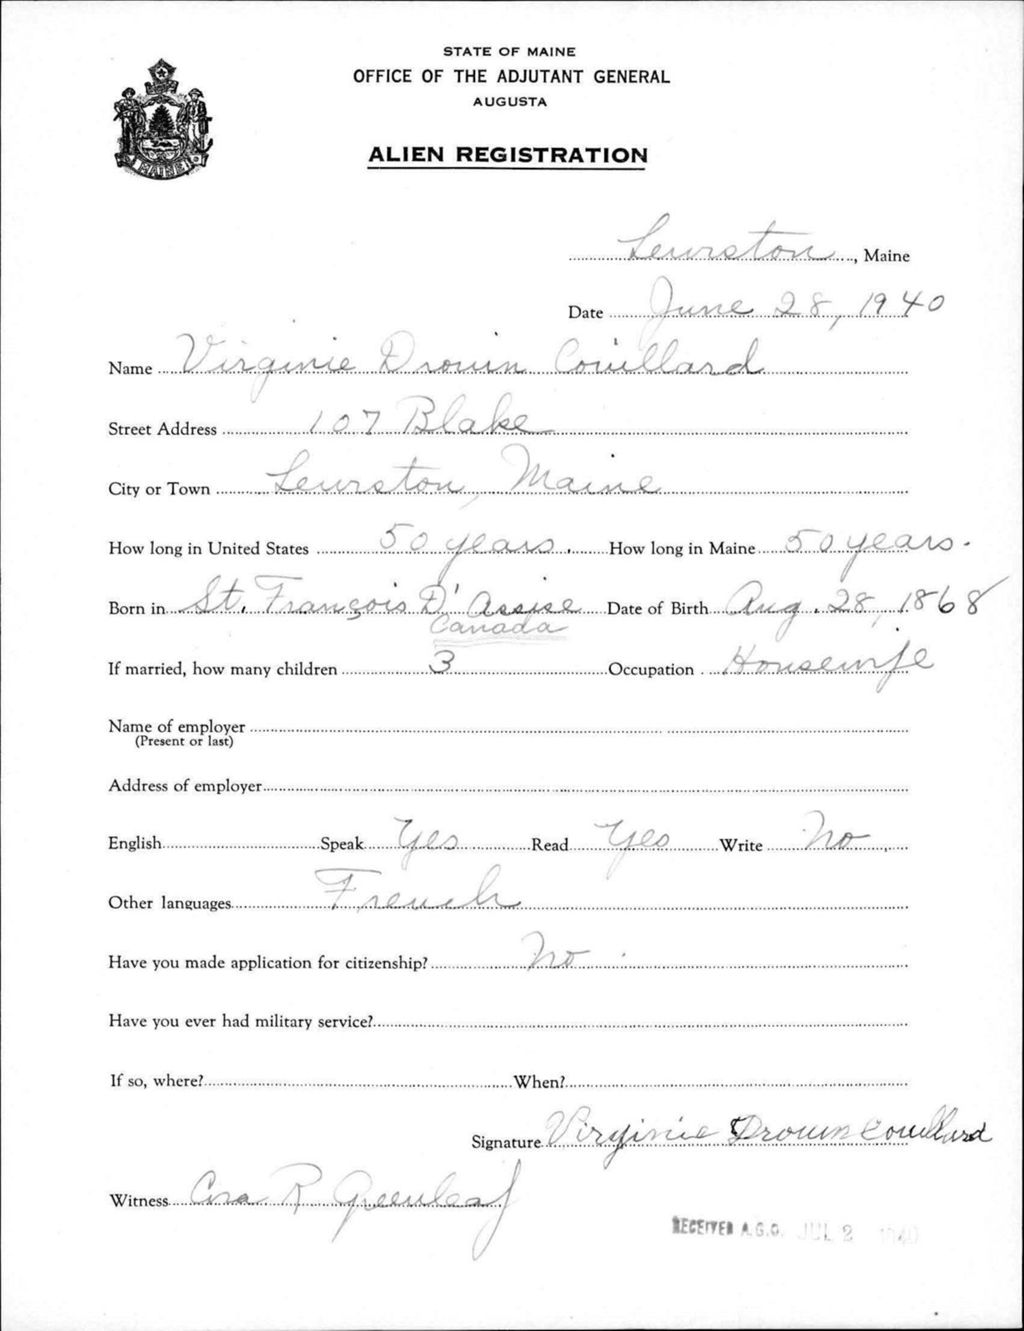 STATE OF MAINE
OFFICE OF THE ADJUTANT GENERAL
AUGUSTA
ALIEN REGISTRATION
MAINE
Lewiston, Maine
Date June 28, 1940
Name Virginie Drouin Couillard
Street Address 107 Blake
City or Town Lewiston, Maine
How long in United States 50 years. How long in Maine 50 years.
Born in St. François D'Assise Date of Birth Aug. 28, 1868
Canada
If married, how many children 3 Occupation Housewife
Name of employer
(Present or last)
Address of employer
English Speak Yes Read Yes Write No
Other languages French
Have you made application for citizenship? No
Have you ever had military service?
If so, where? When?
Signature Virginie Drouin Couillard
Witness Cora R Greenleaf
RECEIVED A.G.O. JUL 2 1940